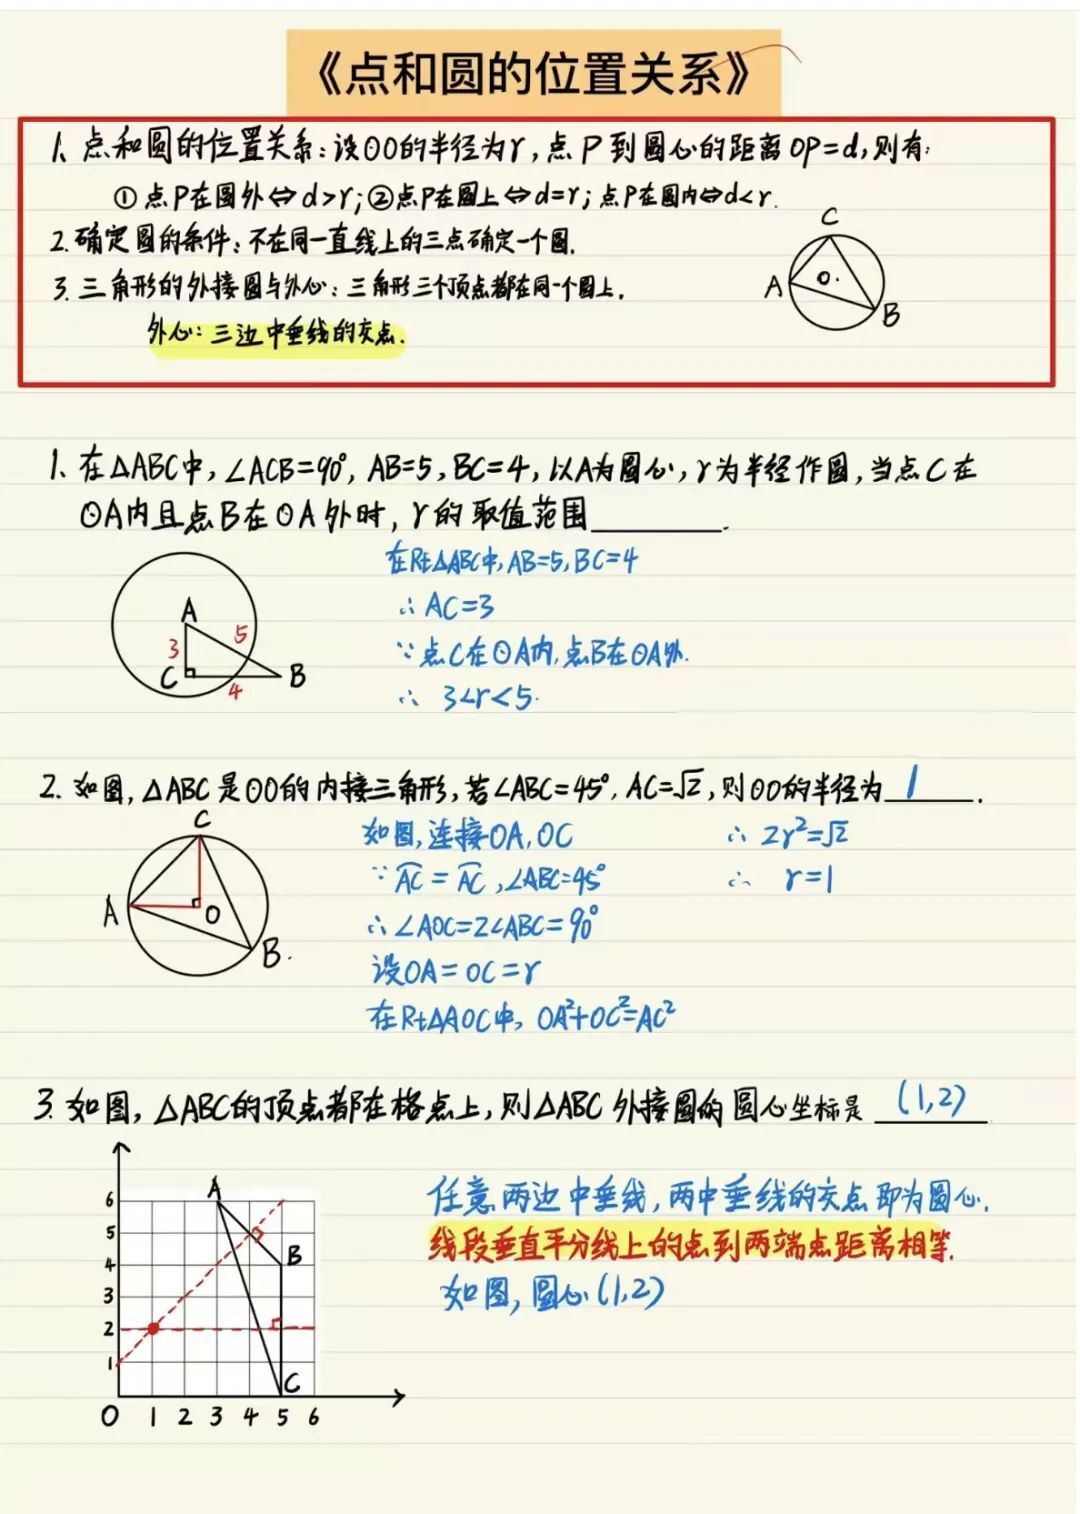 《点和圆的位置关系》
1. 点和圆的位置关系：设⊙O的半径为r，点P到圆心的距离OP=d，则有：
①点P在圆外⇔d>r；②点P在圆上⇔d=r；点P在圆内⇔d<r.
2. 确定圆的条件：不在同一直线上的三点确定一个圆.
3. 三角形的外接圆与外心：三角形三个顶点都在同一个圆上.
外心：三边中垂线的交点.
C
A
O
B
1. 在△ABC中，∠ACB=90°，AB=5，BC=4，以A为圆心，r为半径作圆，当点C在
⊙A内且点B在⊙A外时，r的取值范围________.
A
3
5
C
4
B
在Rt△ABC中，AB=5，BC=4
∴ AC=3
∵ 点C在⊙A内，点B在⊙A外.
∴ 3<r<5.
2. 如图，△ABC是⊙O的内接三角形，若∠ABC=45°，AC=√2，则⊙O的半径为 1 .
C
A
O
B
如图，连接OA，OC
∵ ⌒AC = ⌒AC，∠ABC=45°
∴∠AOC=2∠ABC=90°
设OA=OC=r
在Rt△AOC中，OA²+OC²=AC²
∴ 2r²=√2
∴ r=1
3. 如图，△ABC的顶点都在格点上，则△ABC外接圆的圆心坐标是 (1,2)
6
5
4
3
2
1
A
B
C
0 1 2 3 4 5 6
任意两边中垂线，两中垂线的交点即为圆心.
线段垂直平分线上的点到两端点距离相等.
如图，圆心(1,2)